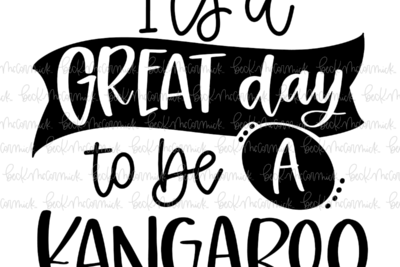 It's a
GREAT day
to be A
KANGAROO